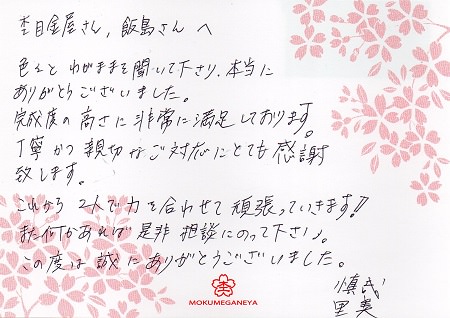 杢目金屋さん, 飯島さん へ
色々と わがままを聞いて下さり、本当に
ありがとうございました。
完成度の高さに非常に満足しております。
丁寧かつ親切なご対応にとても感謝
致します。
これから 2人で力を合わせて 頑張っていきます!!
また何かあれば 是非 相談にのって下さい。
この度は 誠に ありがとうございました。
慎武
里美
MOKUMEGANEYA